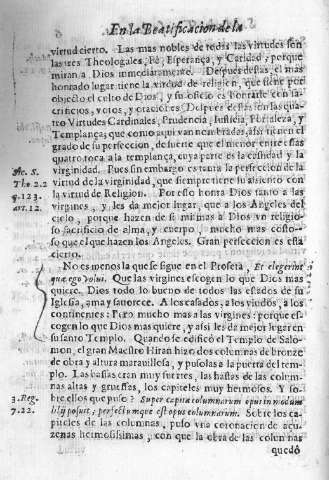 En la Beatificacion de la
virtud cierto. Las mas nobles de todas las virtudes son
las tres Theologales, Fè, Esperança, y Caridad; porque
miran a Dios inmediatamente. Despues destas, el mas
honrado lugar tiene la virtud de religion, que tiene por
objecto el culto de Dios, y su oficio es honrarle con sa-
crificios, votos, y oraciones. Despues destas son las qua-
tro Virtudes Cardinales, Prudencia, Iusticia, Fortaleza, y
Templança; que como aqui van nombradas, assi tienen el
grado de su perfeccion, de suerte que el menor entre estas
quatro toca a la templança, cuya parte es la castidad y la
virginidad. Pues sin embargo es tanta la perfeccion de la
virtud de la virginidad, que siempre tiene su assiento con
la virtud de Religion. Por esso honra Dios tanto a las
virgines, y les da mejor lugar, que a los Angeles del
cielo, porque hazen de si mismas a Dios vn religio-
so sacrificio de alma, y cuerpo, mucho mas costo-
so que el que hazen los Angeles. Gran perfeccion es esta
cierto.
Sic. S.
Tho 2.2
q.123.
art.12.
No es menos la que se sigue en el Profeta, Et elegerint
quæ ego volui. Que las virgines escogen lo que Dios mas
quiere. Dios todo lo bueno de todos las estados de su
Iglesia, ama y fauorece. A los casados, a los viudos, a los
continentes: Pero mucho mas a las virgines: porque es-
cogen lo que Dios mas quiere, y assi les da mejor lugar en
su santo Templo. Quando se edificó el Templo de Salo-
mon, el gran Maestro Hiran hizo dos colunnas de bronze
de obra y altura marauillosa, y pusolas a la puerta del tem-
plo. Las basas eran muy fuertes, las hastas de las colun-
nas altas y gruessas, los capiteles muy hermosos. Y so-
bre ellos que puso? Super capita columnarum opus in modum
lilij posuit, perfectumque est opus columnarum. Sobre los ca-
piteles de las colunnas, puso vna coronacion de açu-
zenas hermosissimas, con que la obra de las colunnas
3. Reg.
7.22.
quedó